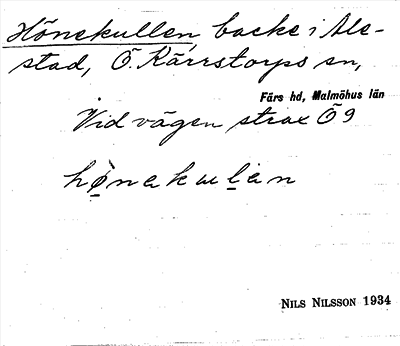 Hönekullen backe i Ale-
stad, Ö. Kärrstorps sn,
Färs hd, Malmöhus län
Vid vägen strax Ö 9
hø̀nekulen
Nils Nilsson 1934